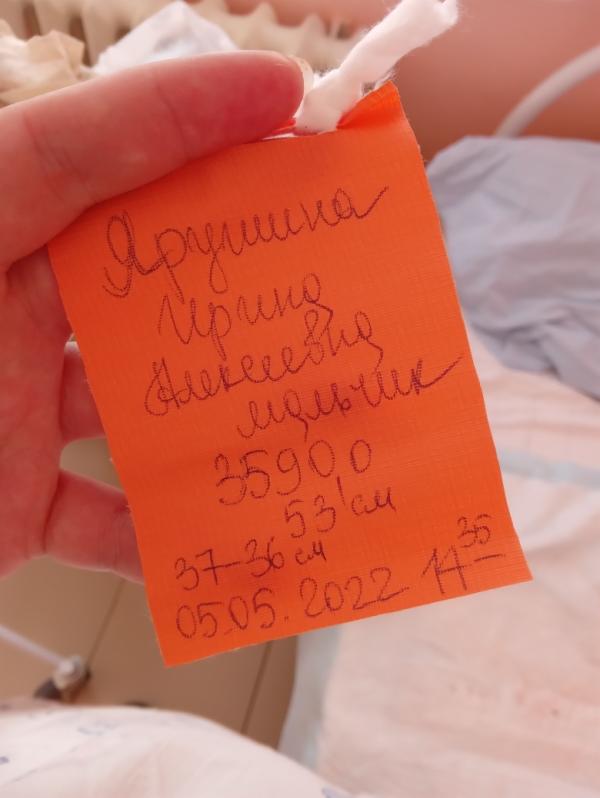 Ярушина
Ирина
Алексеевна
мальчик
3590 0
53 см
37-36 см
05.05.2022 14 35